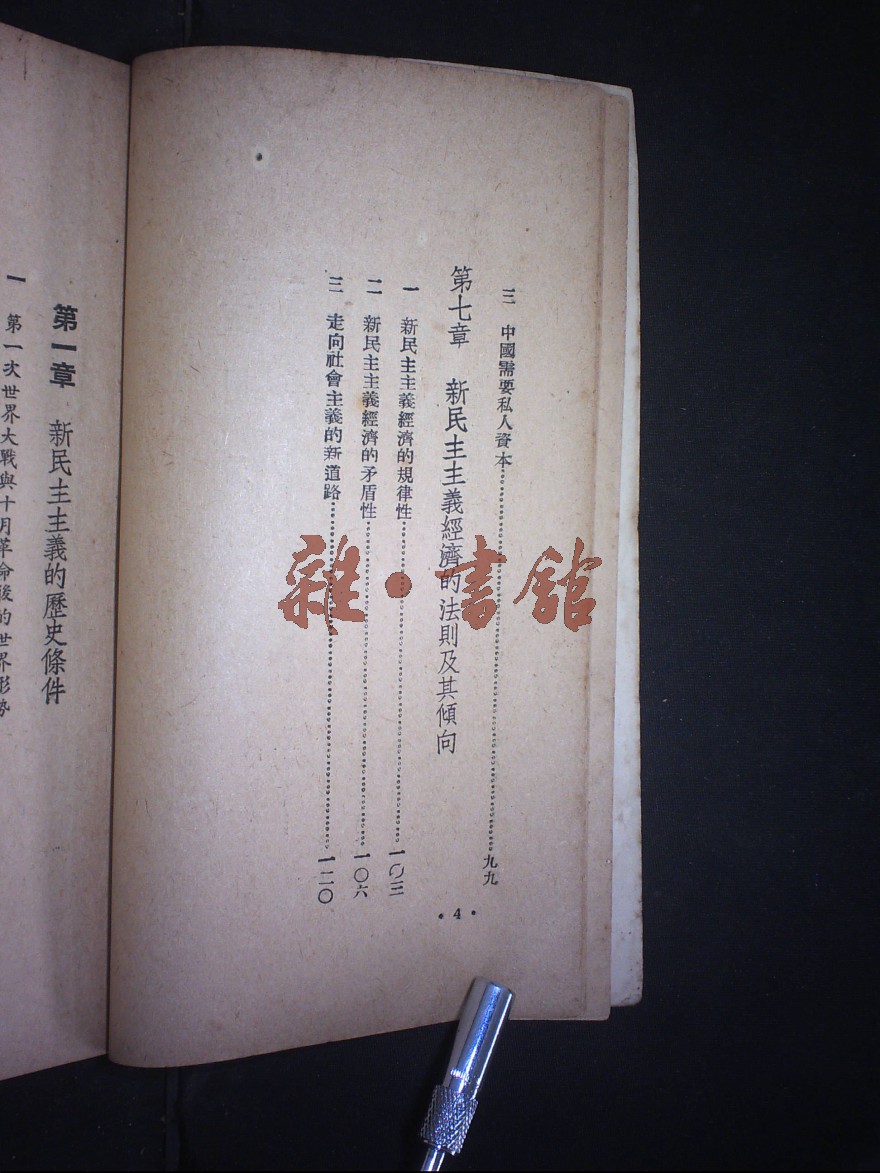 三　中國需要私人資本……九九
第七章　新民主主義經濟的法則及其傾向
一　新民主主義經濟的規律性……一〇三
二　新民主主義經濟的矛盾性……一〇六
三　走向社會主義的新道路……一二〇
•4•
第一章　新民主主義的歷史條件
一　第一次世界大戰與十月革命後的世界形勢
雜•書館